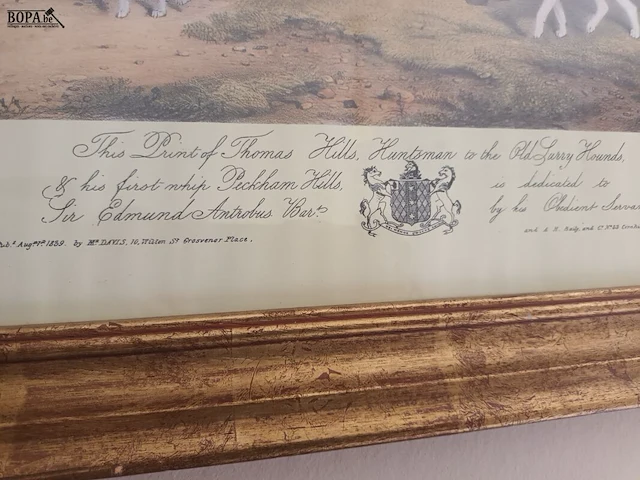 BOPA be
This Print of Thomas Hills, Huntsman to the Old Surry Hounds,
& his first whip Peckham Hills, is dedicated to
Sir Edmund Antrobus Bart. by his Obedient Serva
Pub.d Aug.st 1859. by Mr DAVIS, 10, Wilton St Grosvenor Place,
and